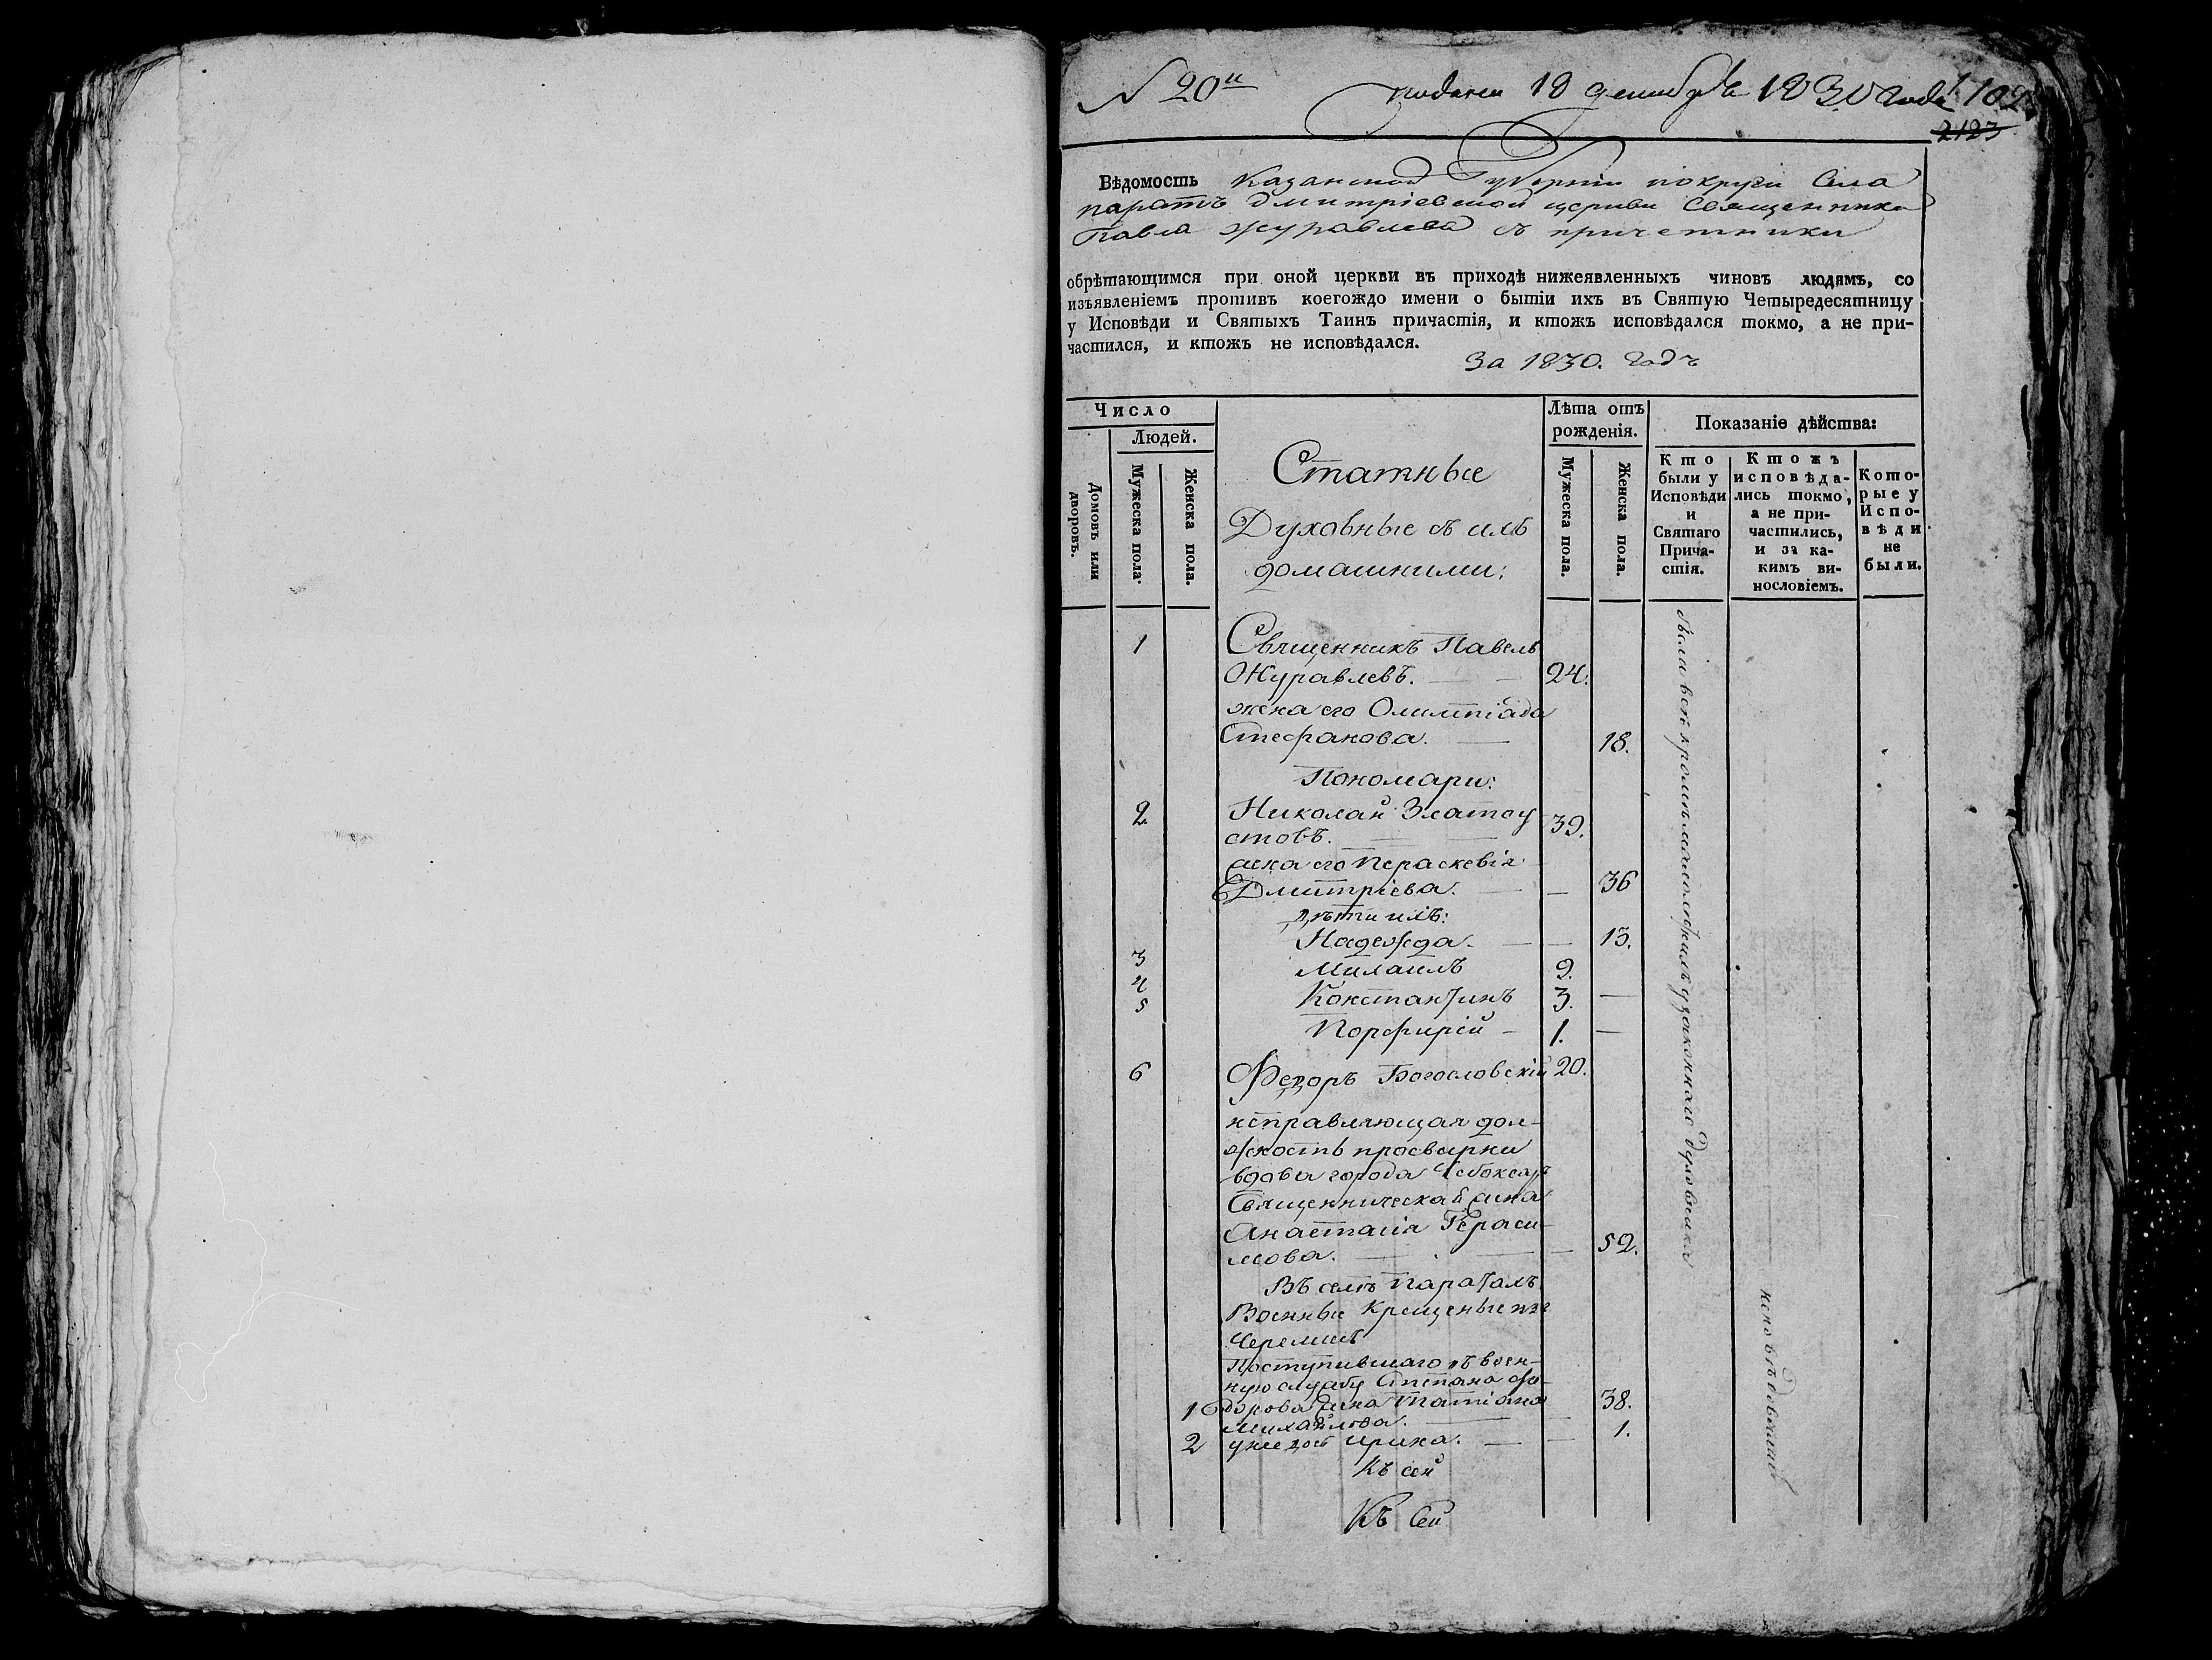 N 20й подана 18 декабря 1830 года
2123
Вѣдомость Казанской Губерніи округи Села
паратъ Дмитріевской церкви Священника
Павла Журавлева съ причетники
обрѣтающимся при оной церкви въ приходѣ нижеявленныхъ чиновъ людямъ, со
изъявленіемъ противъ коегождо имени о бытіи ихъ въ Святую Четыредесятницу
у Исповѣди и Святыхъ Таинъ причастія, и ктожъ исповѣдался токмо, а не при-
частился, и ктожъ не исповѣдался.
За 1830. годъ
Число
Людей.
Домовъ или
дворовъ.
Мужеска пола.
Женска пола.
Статные
Духовные съ ихъ
домашними:
Лѣта отъ
рожденія.
Мужеска пола.
Женска пола.
Показаніе дѣйства:
Кто
были у
Исповѣди
и
Святаго
Прича-
стія.
Ктожъ
исповѣда-
лись токмо,
а не при-
частились,
и за ка-
кимъ ви-
нословіемъ.
Кото-
рые у
Испо-
вѣди
не
были.
1 Священникъ Павелъ
Журавлевъ. 24.
жена его Олимпіада
Стефанова. 18.
Пономари:
2 Николай Златоу
стовъ. 39.
жена его Параскевія
Дмитріева. 36
дѣти ихъ:
Надежда. 13.
3 Михаилъ 9.
4 Константинъ 3.
5 Порфирій 1.
6 Федоръ Богословскій 20.
исправляющая дол-
жность просвирни
вдова города Чебоксаръ
Священническая жена
Анастасія Гераси-
мова. 52.
Въ селѣ Паратахъ
Военные Крещеные изъ
Черемисъ
Поступившаго въ воен-
ную службу Степана Фе-
1 дорова жена Татіана 38.
Михайлова.
2 у нее дочь Ирина. 1.
Къ сей
Къ Сей
были всѣ кромѣ